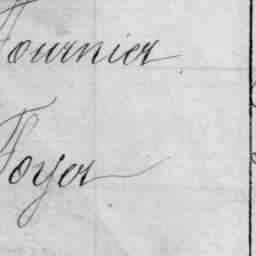 Fournier
Foyer